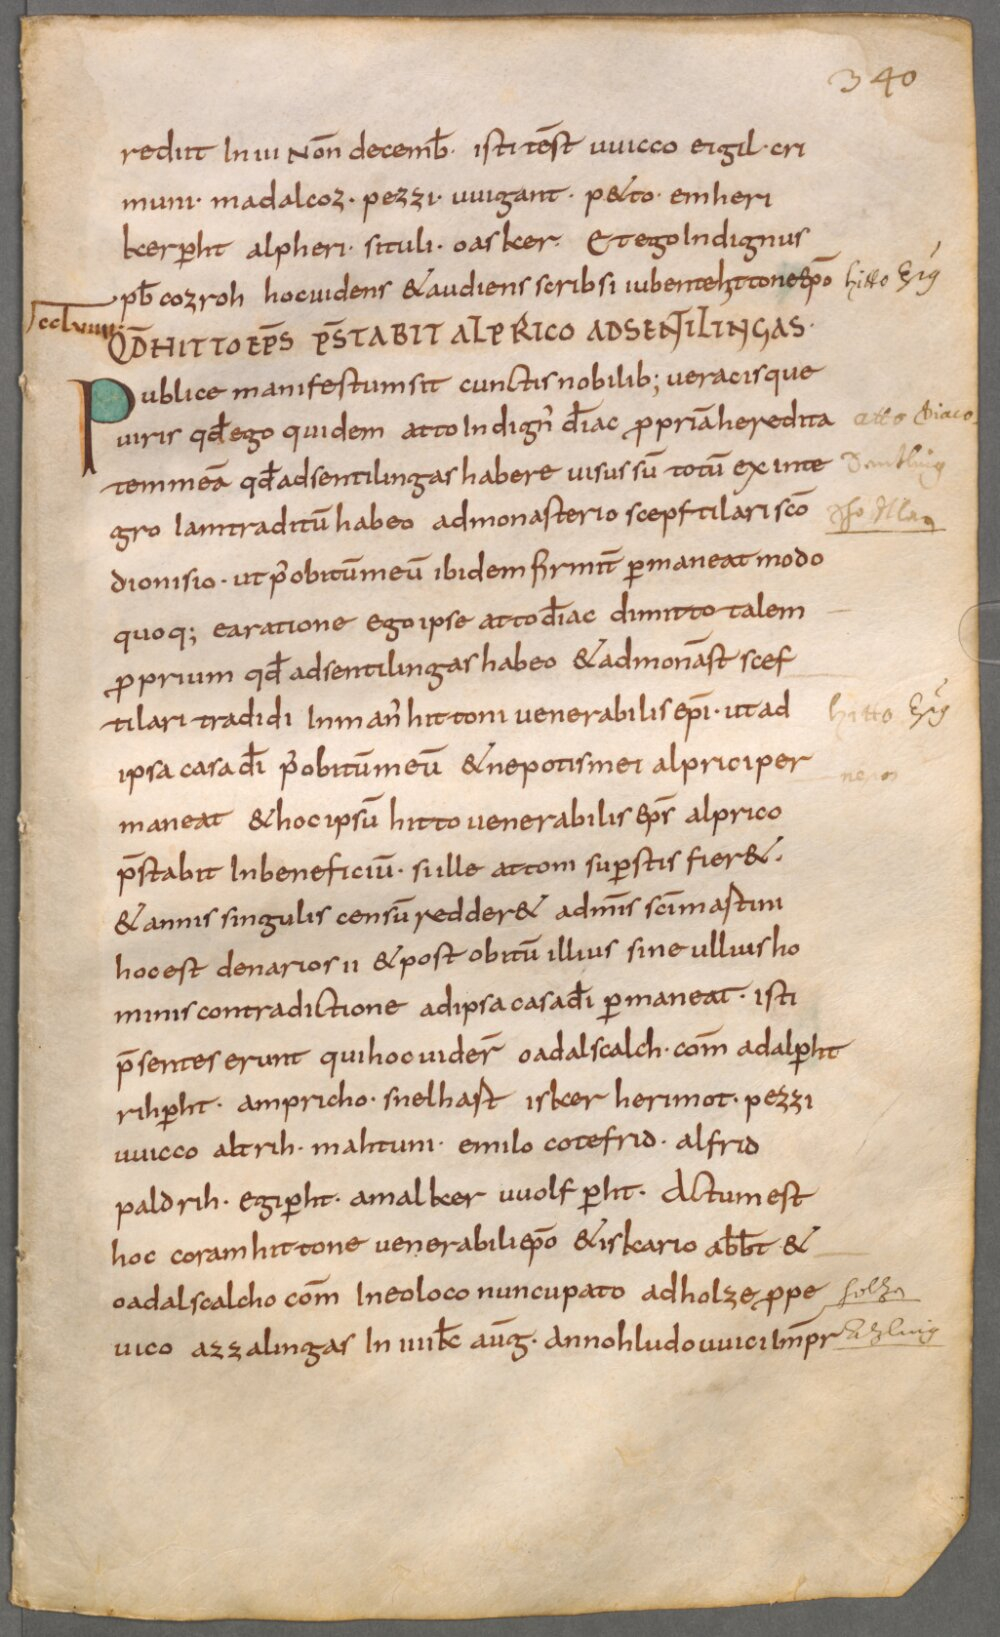 340
rediit In iii Non̄ decemƀ· isti tēst uuicco eigil· cri
muni· madalcoz· pezzi· uuigant· p&to· emheri
kerꝑht alpheri· situli· oasker· Et ego Indignus
pƀ cozroh hoc uidens &audiens scribsi iubente hittone ep̄o hitto Epg
QĐ HITTO EP̄S P̄STABIT ALPRICO AD SENTILINGAS·
Publice manifestum sit cunctis nobilib; ueracisque
uiris qđ ego quidem atto Indign̄ điac ꝓpriā heredita atto Diaco
tem meā qđ ad sentilingas habere uisus sū totū ex inte
gro Iam traditū habeo ad monasterio sceptilari scō
dionisio· ut p̄ obitū meū ibidem firmit̄ ꝑmaneat modo
quoq; ea ratione ego ipse atto điac dimitto talem
ꝓprium qđ ad sentilingas habeo &ad monāst scef
tilari tradidi In man̄ hittoni uenerabilis ep̄i· ut ad hitto Epg
ipsa casa đi p̄ obitū meū &nepotis mei alprici per
maneat &hoc ipsū hitto uenerabilis ep̄s alprico
p̄stabit In beneficiū· si ille attoni suꝑstis fier&·
&annis singulis censū redder& ad mis̄ sc̄i mastini
hoc est denarios ii &post obitū illius sine ullius ho
minis contradictione ad ipsa casa đi ꝑmaneat· isti
p̄sentes erunt qui hoc uider̄ oadalscalch· com̄ adalꝑht
rihꝑht· ampricho· snelhast isker herimot· pezzi
uuicco altrih· mahtuni· emilo cotefrid· alfrid
paldrih· egiꝑht· amalker uuolfꝑht· Actum est
hoc coram hittone uenerabili ep̄o &iskario abƀt &
oadalscalcho com̄ In eo loco nuncupato ad holze ꝓpe holzn
uico azzalingas In iiii kł aūg· anno hludouuici Im̄pr Azling